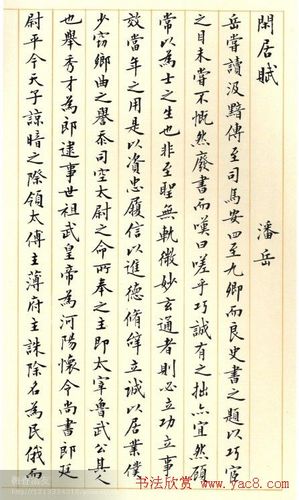 閑居賦 潘岳
岳嘗讀汲黯傳至司馬安四至九卿而良史書之題以巧宦
之目未嘗不慨然廢書而嘆曰嗟乎巧誠有之拙亦宜然顧
常以為士之生也非至聖無軌微妙玄通者則必立功立事
效當年之用是以資忠履信以進德脩辭立誠以居業僕
少竊鄉曲之譽忝司空太尉之命所奉之主即太宰魯武公其人
也舉秀才為郎逮事世祖武皇帝為河陽懷令尚書郎廷
尉平今天子諒暗之際領太傅主薄府主誅除名為民俄而
书法欣赏
www.yac8.com